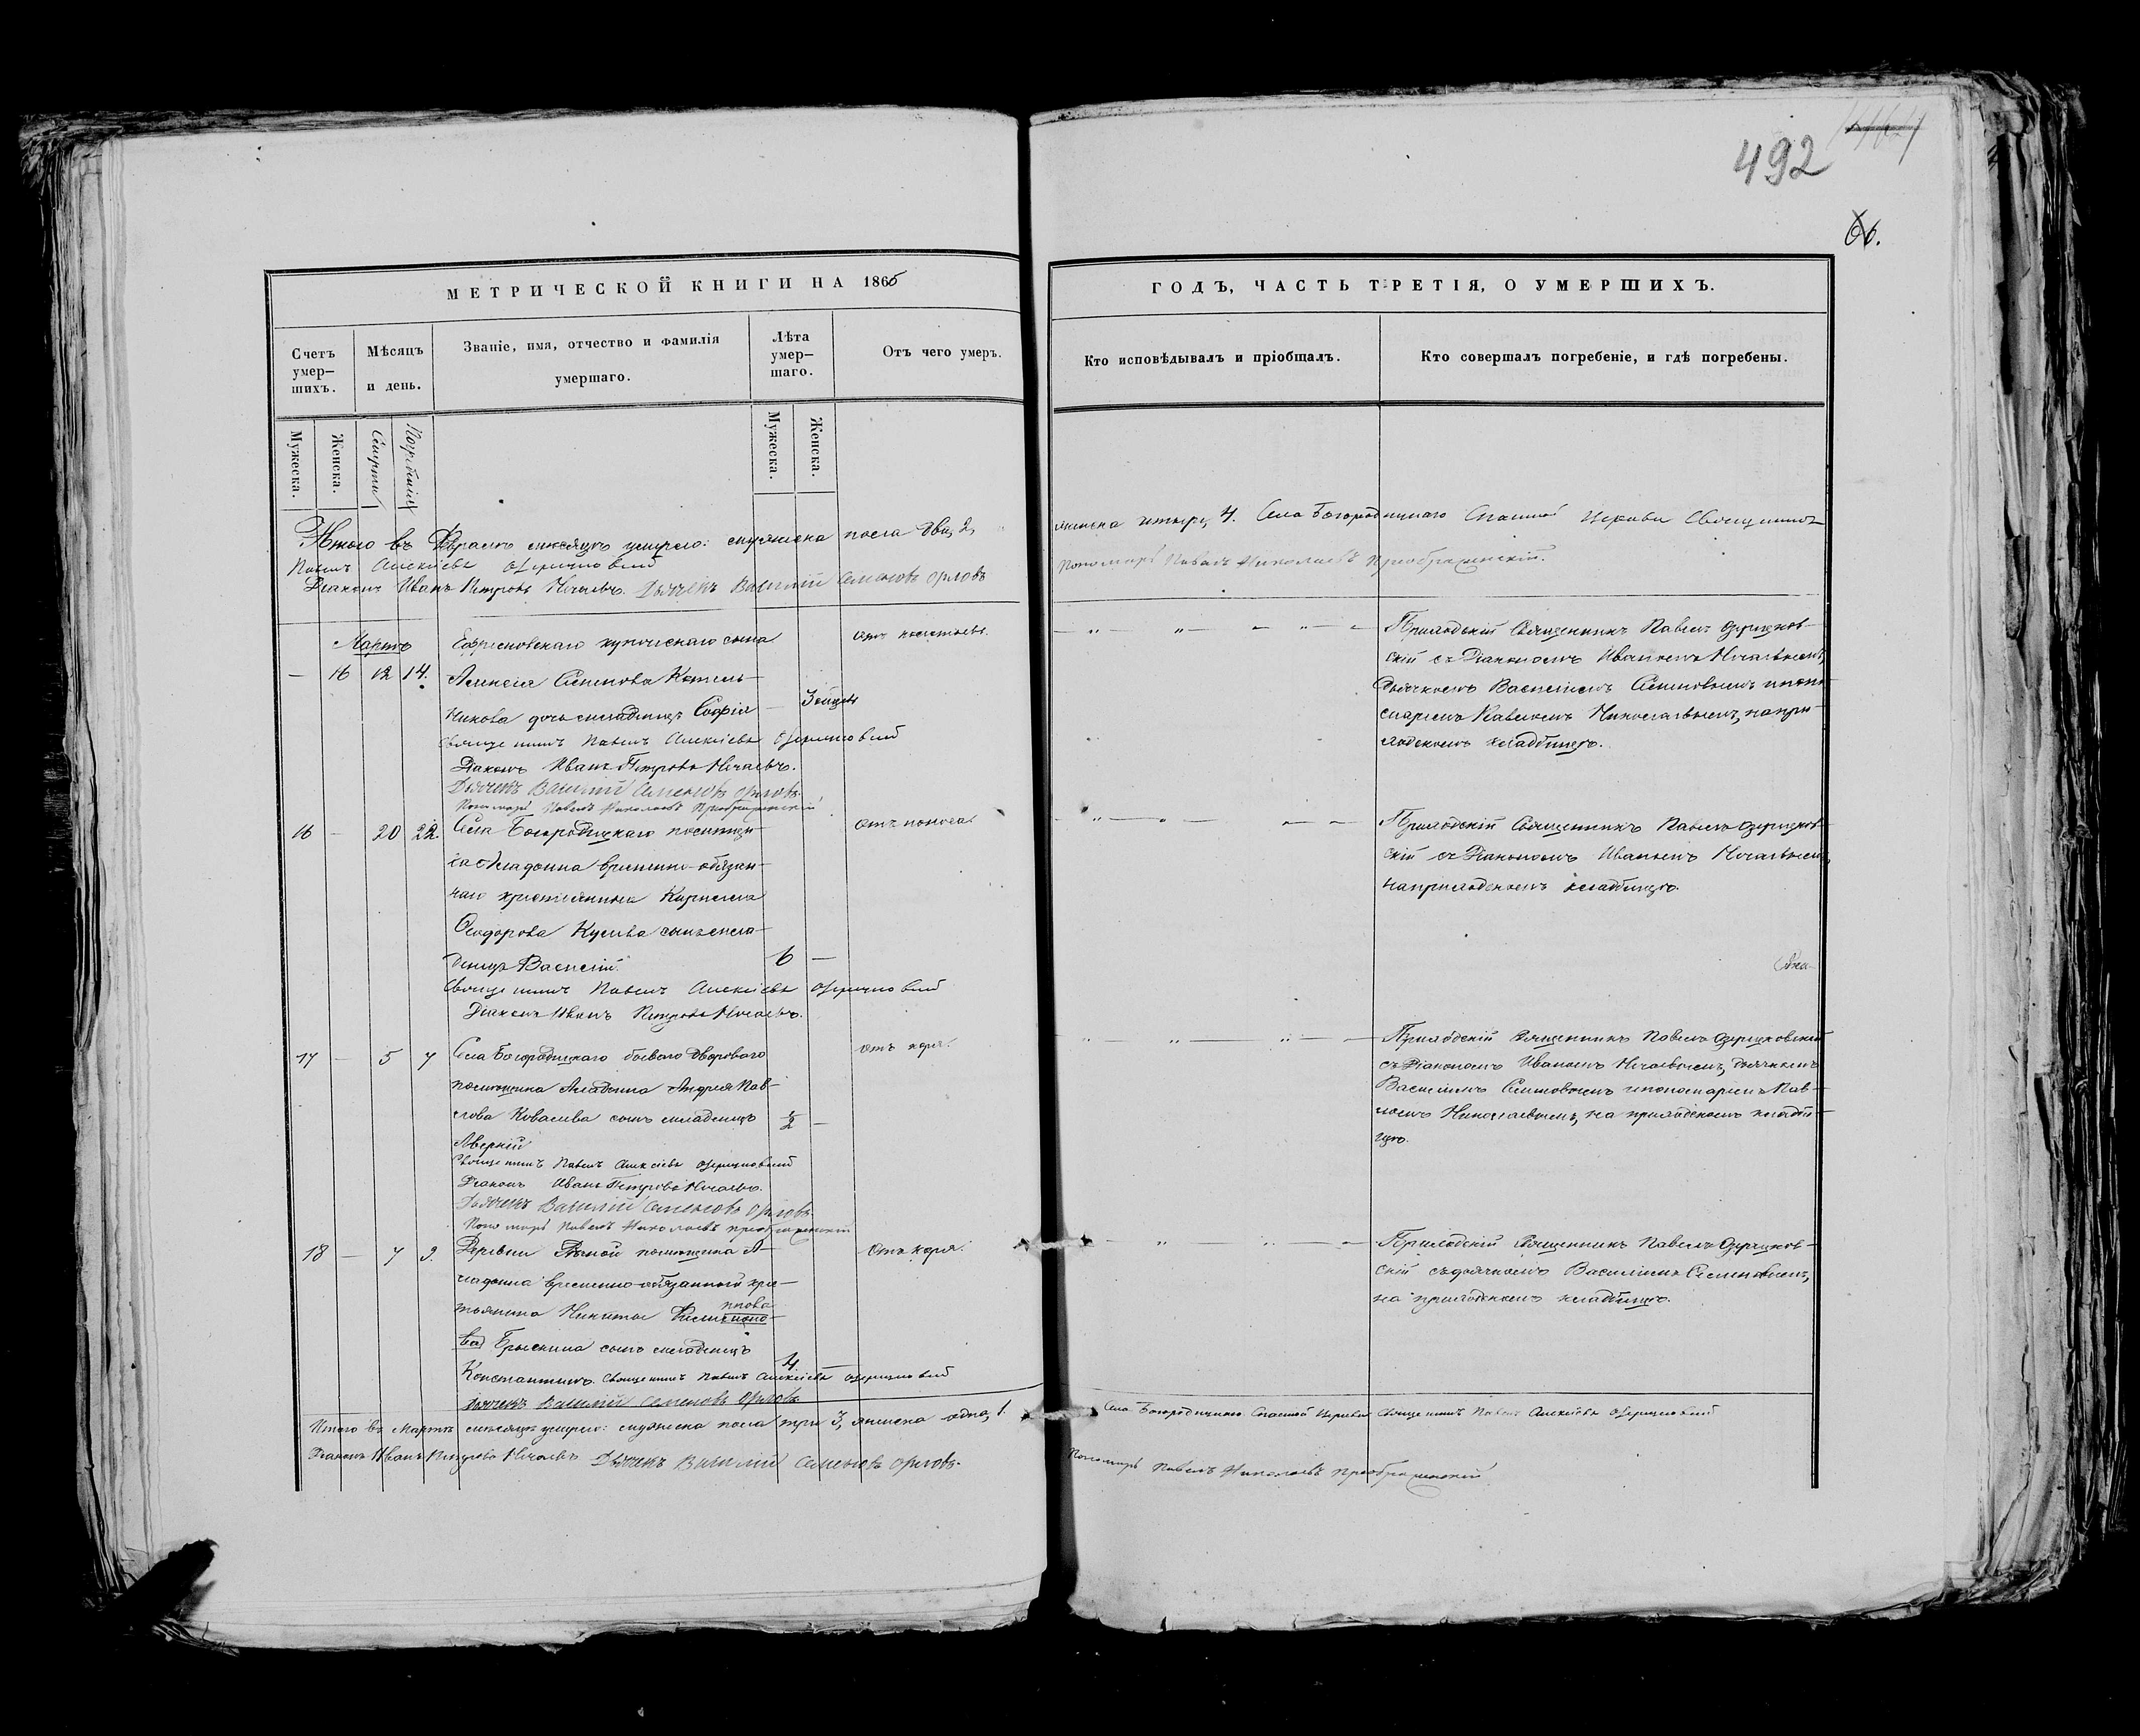 492
66.
МЕТРИЧЕСКОЙ КНИГИ НА 1865
ГОДЪ, ЧАСТЬ ТРЕТІЯ, О УМЕРШИХЪ.
Счетъ умер-шихъ.
Мѣсяцъ и день.
Званіе, имя, отчество и фамилія умершаго.
Лѣта умер-шаго.
Отъ чего умеръ.
Кто исповѣдывалъ и пріобщалъ.
Кто совершалъ погребеніе, и гдѣ погребены.
Мужеска.
Женска.
Смерти
Погребенія
Мужеска.
Женска.
Итого въ Февралѣ мѣсяцѣ умерло: мужеска пола два, 2,
женска четыре, 4. Села Богородицкаго Спасской Церкви Священникъ
Павелъ Алексіевъ Озерецковскій
Діаконъ Иванъ Петровъ Нечаевъ. Дьячекъ Василій Семеновъ Орловъ
Пономарь Павелъ Николаевъ Преображенскій.
Мартъ
— 16 12 14.
Ефремовскаго купеческаго сына
Алексія Семенова Котель-
никова дочь младенецъ Софія
— 3 мѣсяц
Священникъ Павелъ Алексіевъ Озерецковскій
Діаконъ Иванъ Петровъ Нечаевъ.
Дьячекъ Василій Семеновъ Орловъ.
Пономарь Павелъ Николаевъ Преображенскій
Приходскій Священникъ Павелъ Озерецков-
скій съ Діакономъ Иваномъ Нечаевымъ,
Дьячкомъ Василіемъ Семеновымъ и поно-
маремъ Павломъ Николаевымъ, на при-
ходскомъ кладбищѣ.
16 — 20 22.
Села Богородицкаго помѣщи-
ка Хладонна временно-обязан-
наго крестьянина Карнилія
Ѳеодорова Кусева сынъ мла-
денецъ Василій.
6 —
Отъ поноса
Священникъ Павелъ Алексіевъ Озерецковскій
Діаконъ Иванъ Петровъ Нечаевъ.
Приходскій Священникъ Павелъ Озерецков-
скій съ Діакономъ Иваномъ Нечаевымъ,
на приходскомъ кладбищѣ.
17 — 5 7
Села Богородицкаго бывшаго дворового
помѣщика Хладонна Андрея Пав-
лова Ковалева сынъ младенецъ
Аверкій
1/2 —
Отъ кори.
Священникъ Павелъ Алексіевъ Озерецковскій
Діаконъ Иванъ Петровъ Нечаевъ.
Дьячекъ Василій Семеновъ Орловъ.
Пономарь Павелъ Николаевъ Преображенскій
Приходскій Священникъ Павелъ Озерецковскій
съ Діакономъ Иваномъ Нечаевымъ, Дьячкомъ
Василіемъ Семеновымъ и пономаремъ Пав-
ломъ Николаевымъ, на приходскомъ кладби-
щѣ.
18 — 7 9.
помѣщика Х-
ладонна временно-обязанный кре-
стьянина Никиты
сынъ младенецъ
Константинъ.
4
Отъ кори.
Священникъ Павелъ Алексіевъ Озерецковскій
Дьячекъ Василій Семеновъ Орловъ.
Приходскій Священникъ Павелъ Озерецков-
скій съ дьячкомъ Василіемъ Семеновымъ,
на приходскомъ кладбищѣ.
Итого въ Мартѣ мѣсяцѣ умерло: мужеска пола три 3, женска одна, 1.
Села Богородицкаго Спасской Церкви Священникъ Павелъ Алексіевъ Озерецковскій
Діаконъ Иванъ Петровъ Нечаевъ Дьячекъ Василій Семеновъ Орловъ.
Пономарь Павелъ Николаевъ Преображенскій